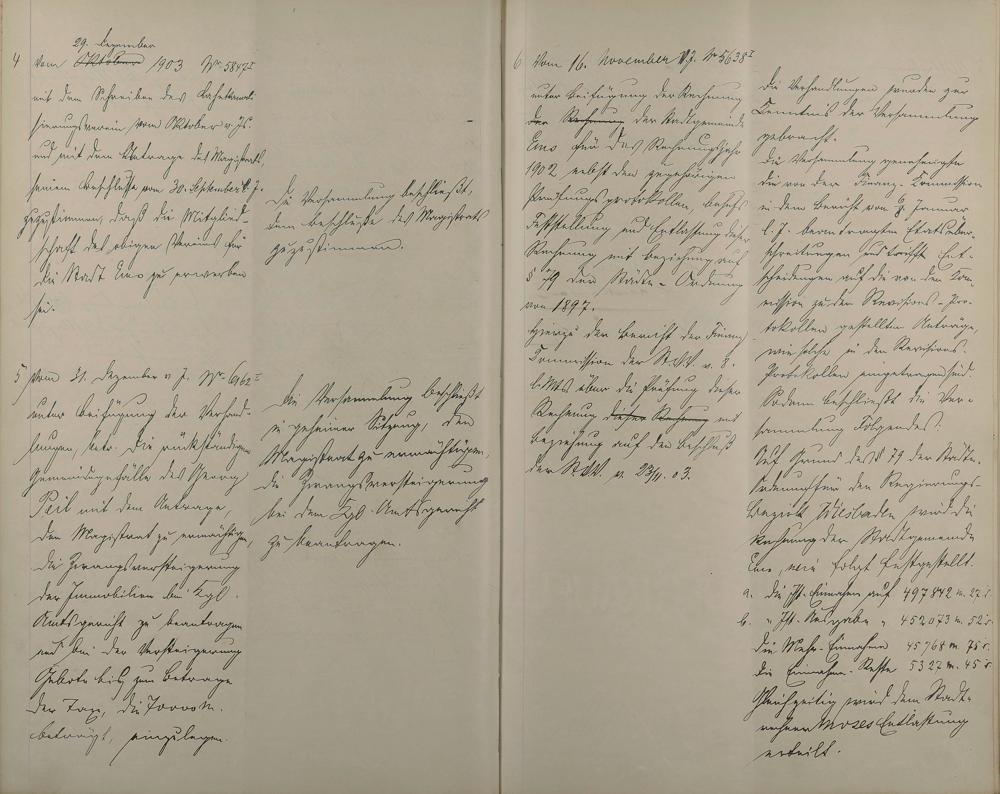 29. Dezember
4 Vom Oktober 1903 Nr. 5847 I
mit dem Schreiben des
vom Oktober v. Js.
und mit dem Antrage des Magistrats,
seinem Beschlusse vom 30. September v. J.
zuzustimmen, daß die Mitglied-
schaft des obigen Vereins für
die Stadt Ems zu erwerben
sei.
Die Versammlung beschließt,
dem Beschlusse des Magistrats
zuzustimmen.
5 Vom 31. Dezember v. J. Nr. 6962 I
unter Beifügung der Verhand-
lungen, betr. die rückständigen
Gemeindegefälle des Georg
Peil mit dem Antrage,
den Magistrat zu ermächtigen,
die Zwangsversteigerung
der Immobilien bei Kgl.
Amtsgericht zu beantragen
und bei der Versteigerung
Gebote bis zum Betrage
der Taxe, die 70000 M.
beträgt, einzulegen.
Die Versammlung beschließt
in geheimer Sitzung, den
Magistrat zu ermächtigen,
die Zwangsversteigerung
bei dem Kgl. Amtsgericht
zu beantragen.
6 Vom 16. November v. J. Nr. 5638 I
unter Beifügung der Rechnung
der Rechnung der Stadtgemeinde
Ems für das Rechnungsjahr
1902 nebst den zugehörigen
Prüfungsprotokollen, behufs
Feststellung und Entlastung dieser
Rechnung mit Beziehung auf
§ 79 der Städte-Ordnung
von 1897.
Hierzu der Bericht der Finanz-
Commission der St.V.V. v. 8.
l. Mts über die Prüfung dieser
Rechnung dieser Rechnung mit
Beziehung auf den Beschluß
der St.V.V. v. 23/11. 03.
Die Verhandlungen wurden zur
Kenntnis der Versammlung
gebracht.
Die Versammlung genehmigte
die von der Finanz-Commission
in dem Bericht vom 8. Januar
l. J. beantragten Etatsüber-
schreitungen und trifft Ent-
scheidungen auf die von der Com-
mission zu den Revisions-Pro-
tokollen gestellten Anträge,
wie solche in den Revisions-
Protokollen eingetragen sind.
Sodann beschließt die Ver-
sammlung Folgendes:
Auf Grund des § 79 der Städte-
Ordnung für den Regierungs-
Bezirk Wiesbaden wird die
Rechnung der Stadtgemeinde
Ems, wie folgt festgestellt.
a. die Ist-Einnahme auf 497842 M. 27 d.
b. " Ist-Ausgabe " 452073 M. 52 d.
die Mehr-Einnahme 45768 M. 75 d.
die Einnahme-Reste 5327 M. 45 d.
Gleichzeitig wird dem Stadt-
rechner Moses Entlastung
erteilt.